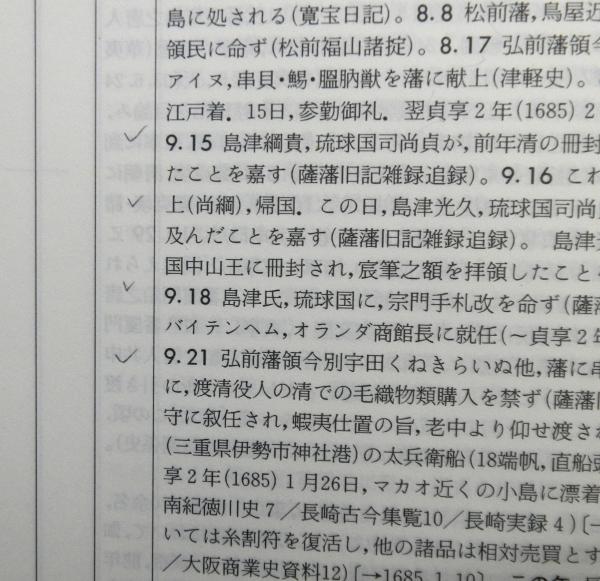 島に処される(寛宝日記)。8.8 松前藩,鳥屋近
領民に命ず(松前福山諸掟)。8.17 弘前藩領今
アイヌ,串貝・鰑・膃肭獣を藩に献上(津軽史)。
江戸着. 15日,参勤御礼. 翌貞享2年(1685)2
9.15 島津綱貴,琉球国司尚貞が,前年清の冊封
たことを嘉す(薩藩旧記雑録追録)。9.16 これ
上(尚綱),帰国. この日,島津光久,琉球国司尚
及んだことを嘉す(薩藩旧記雑録追録)。 島津
国中山王に冊封され,宸筆之額を拝領したこと
9.18 島津氏,琉球国に,宗門手札改を命ず(薩
バイテンヘム,オランダ商館長に就任(~貞享2年
9.21 弘前藩領今別宇田くねきらいぬ他,藩に串
に,渡清役人の清での毛織物類購入を禁ず(薩藩
守に叙任され,蝦夷仕置の旨,老中より仰せ渡さ
(三重県伊勢市神社港)の太兵衛船(18端帆,直船頭
享2年(1685)1月26日,マカオ近くの小島に漂着
南紀徳川史7/長崎古今集覧10/長崎実録4)[→
いては糸割符を復活し,他の諸品は相対売買とす
/大阪商業史資料12)[→1685.1.10]